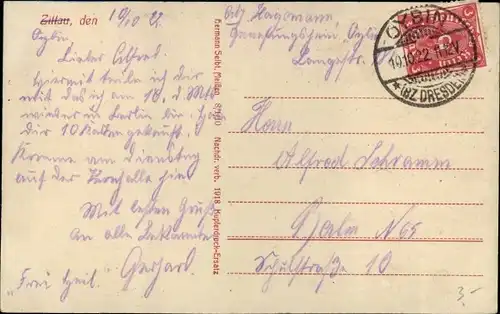 Zittau, den 10/10 22.
Oybin
Lieber Alfred.
Hiermit teile ich dir
mit das ich am 18. d. Mts.
wieder in Berlin bin.
dir 10 Karten gekauft.
Komme am Dienstag
auf der hin
Mit besten Gruß
an alle Bekannte
"Frei Heil." Gerhard.
Hermann Seibt, Meißen Nachdr. verb. 1918 Kupferdruck-Ersatz
Abs. Hagemann
Genesungsheim Oybin
OYBIN
10.10.22
*(BZ DRESDEN)
Herrn
Alfred Schramm
Berlin N 65
Schulstraße 10
3,-